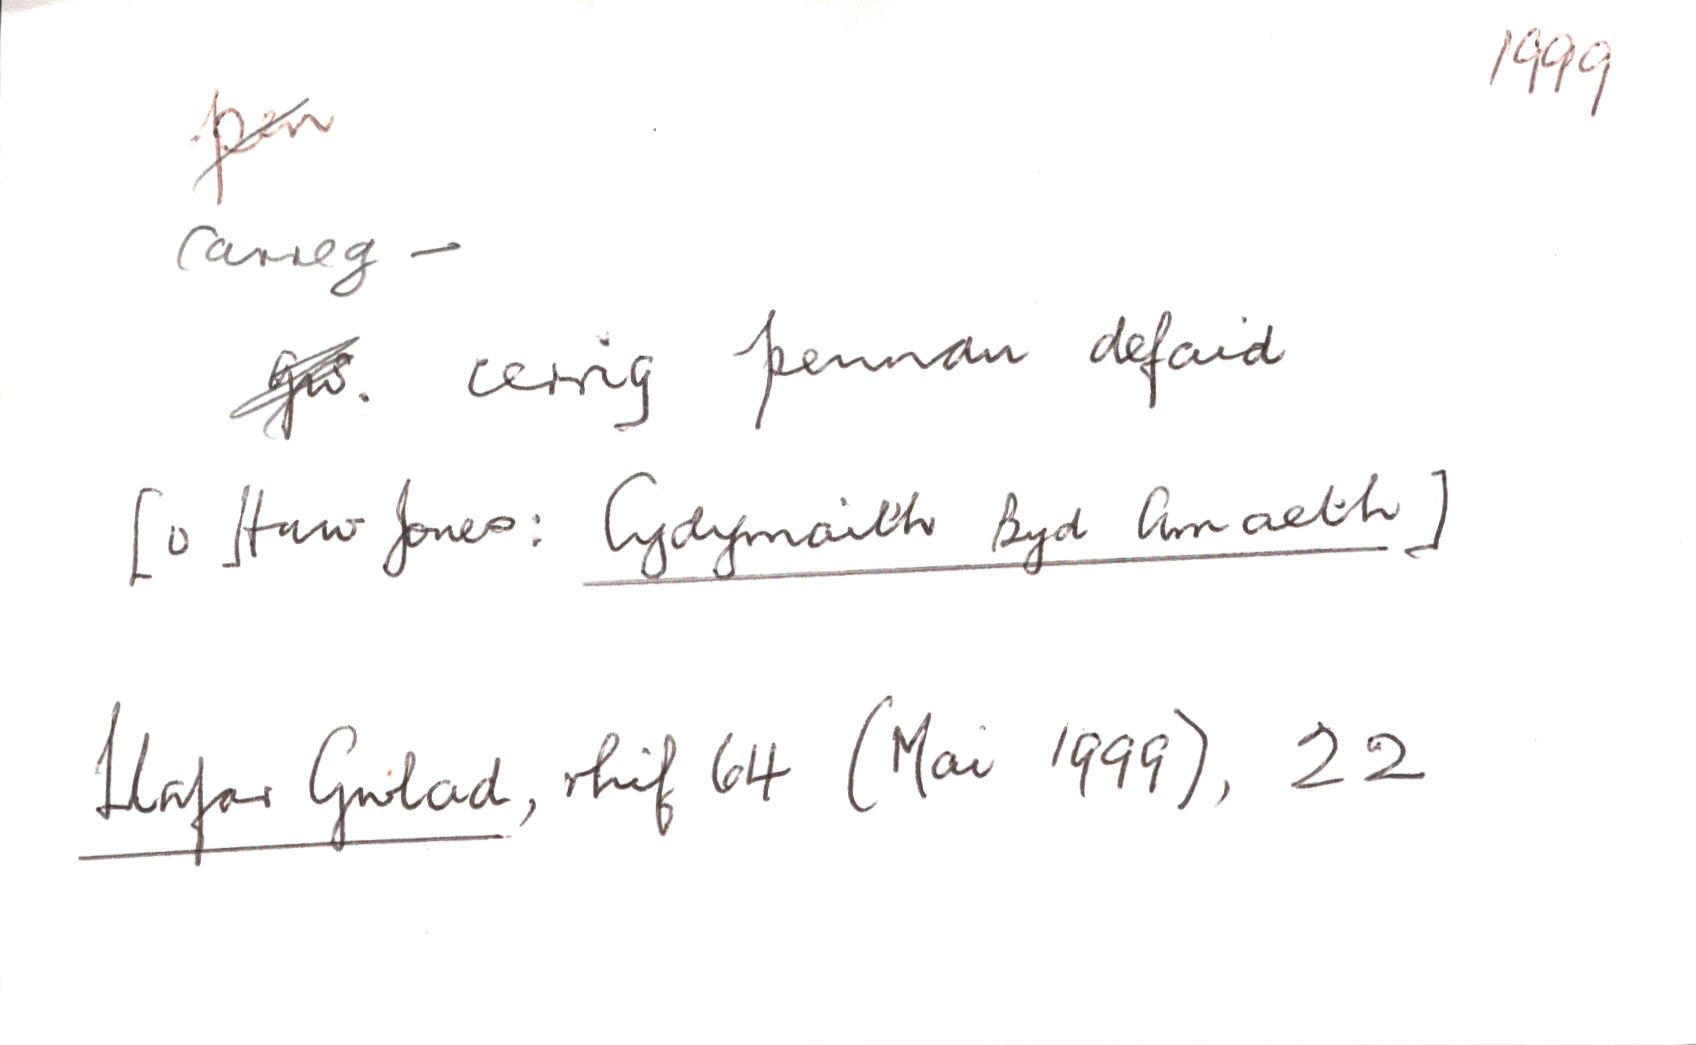 1999
pen
carreg –
gw. cerrig pennau defaid
[o Huw Jones: Cydymaith Byd Amaeth]
Llafar Gwlad, rhif 64 (Mai 1999), 22